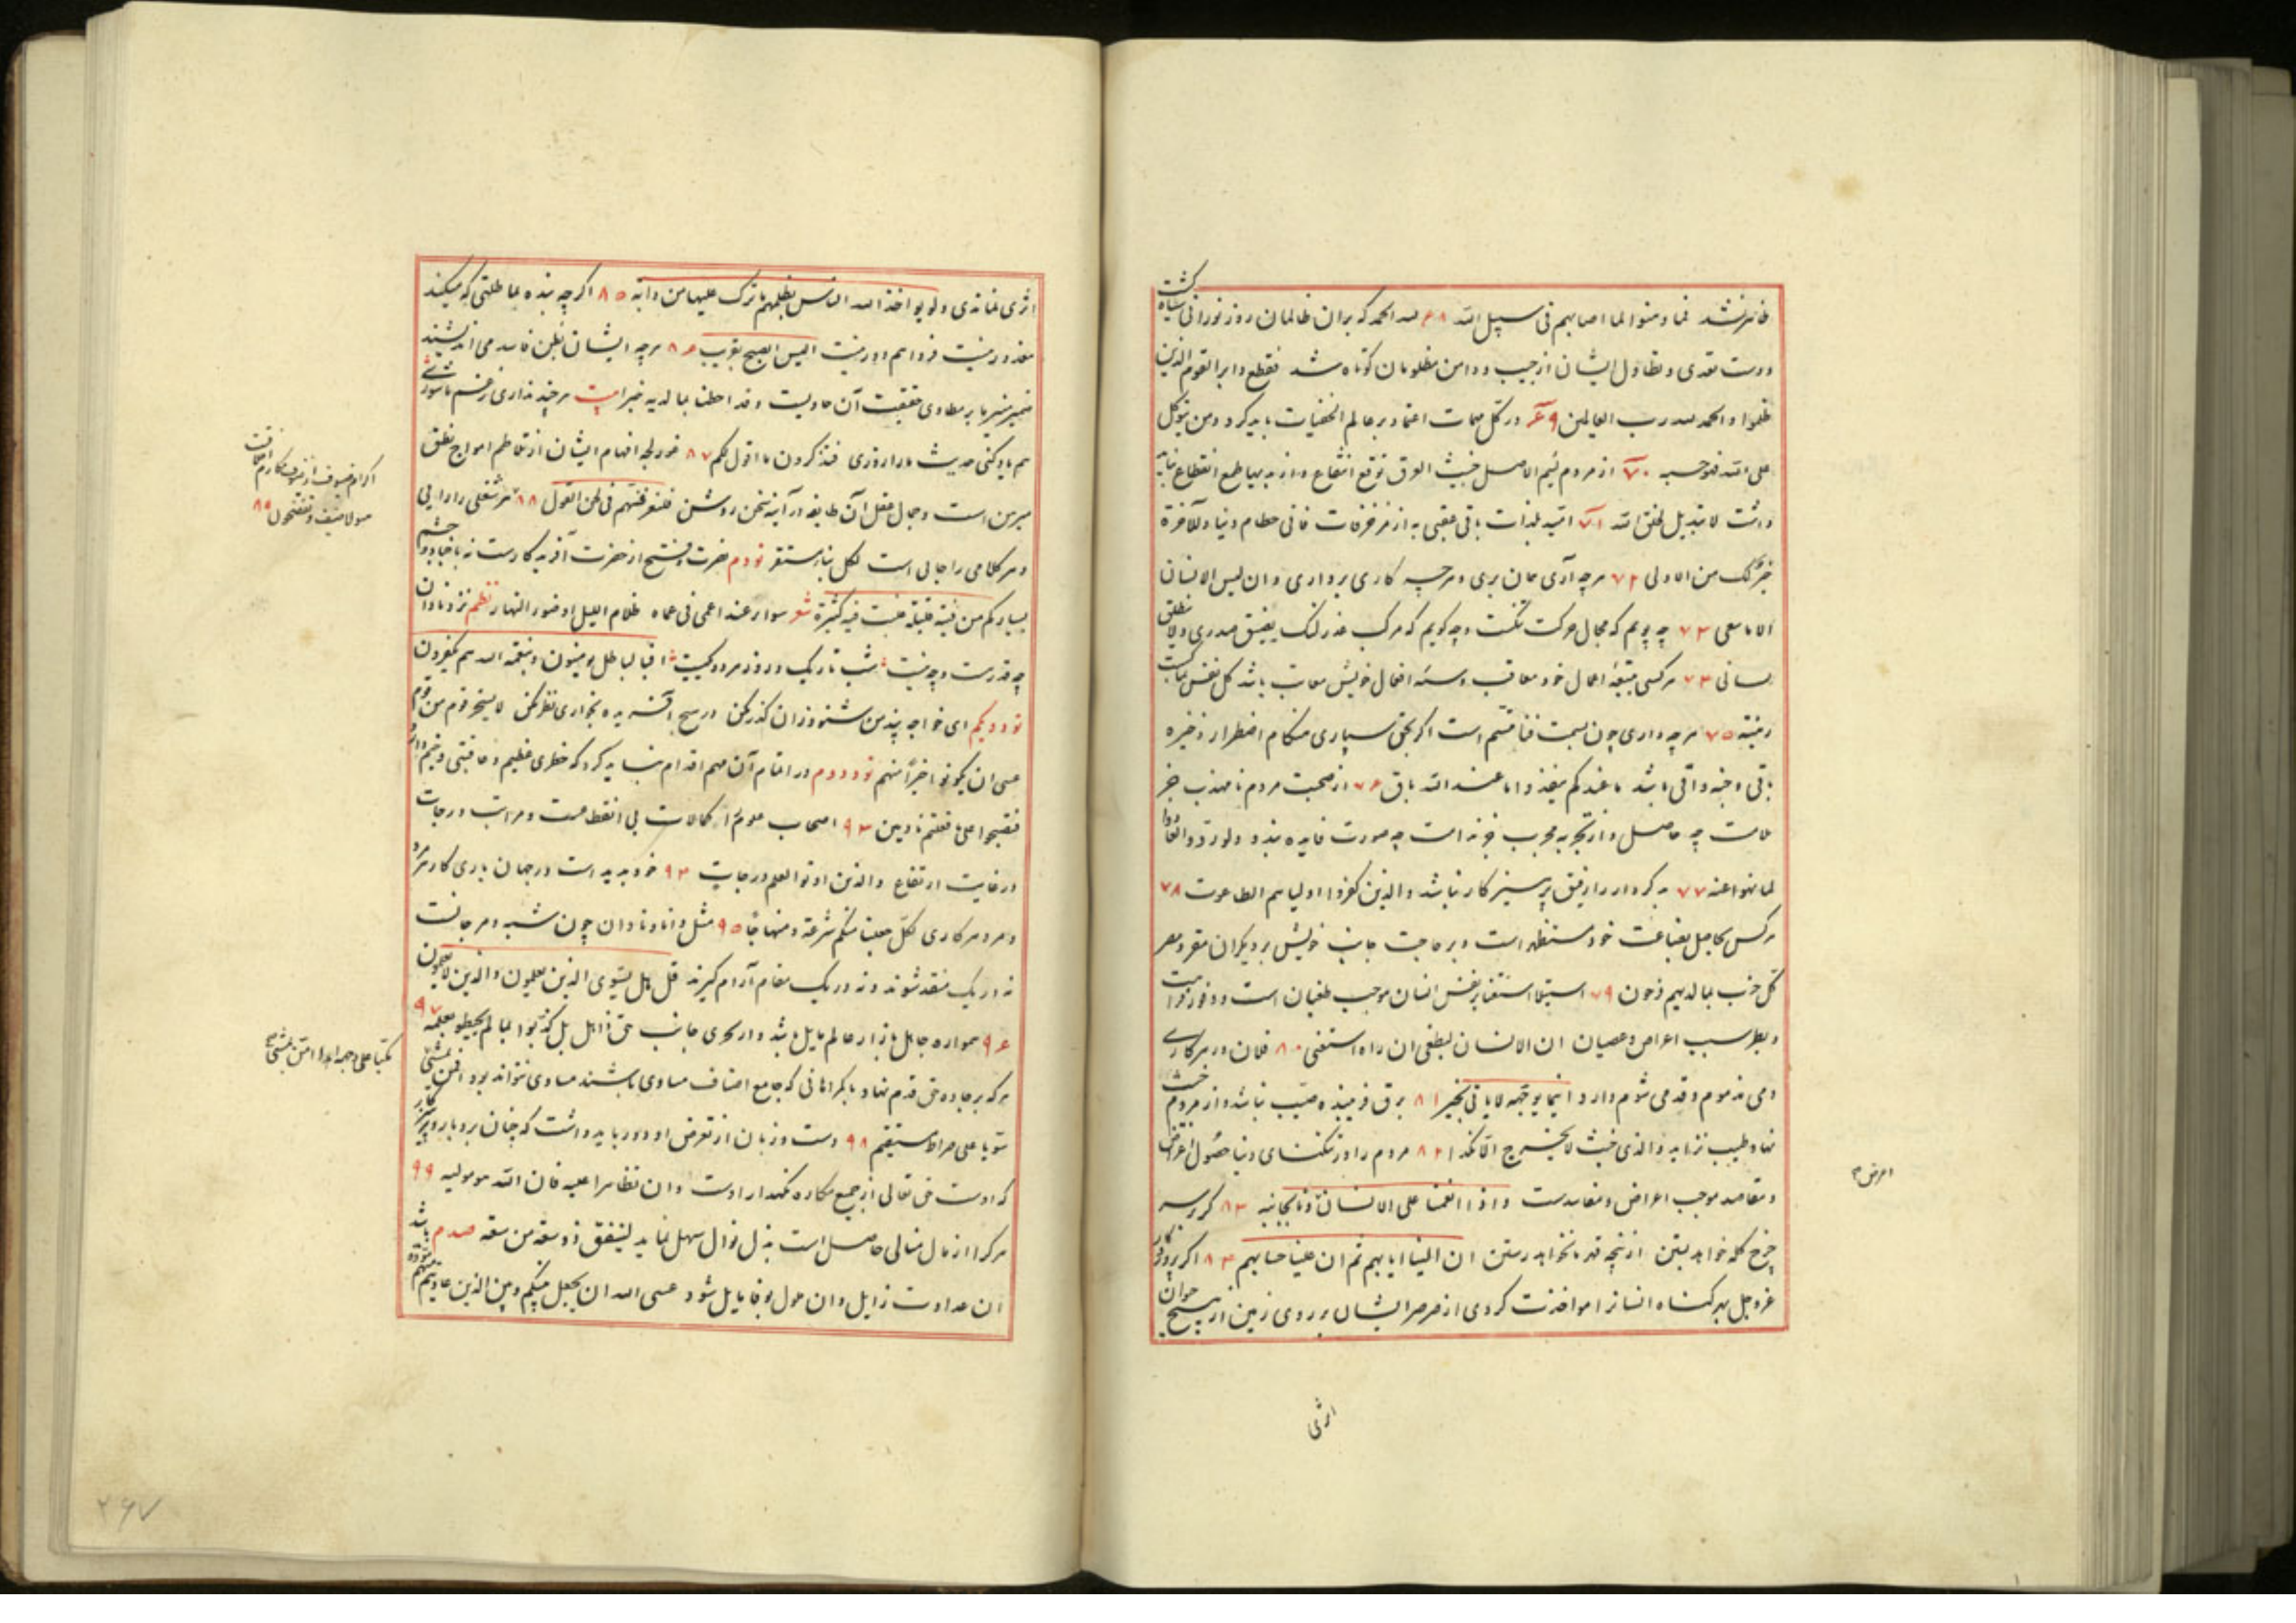 ظاهر نشد فما وهنوا لما اصابهم فی سبیل الله ۶۸ لله الحمد که بران ظالمان روز نورانی سیاه گشت
و دست تعدی و تطاول ایشان از جیب و دامن مظلومان کوتاه شد فقطع دابر القوم الذین
ظلموا والحمد لله رب العالمین ۶۹ در کل مهمات اعتماد بر عالم الخفیات باید کرد ومن یتوکل
علی الله فهو حسبه ۷۰ از مردم لئیم الاصل خبیث العرق توقع انتفاع و از
داشت لا تبدیل لخلق الله ۷۱ لذات باقی عقبی به از مزخرفات فانی حطام دنیا وللآخرة
خیر لک من الاولی ۷۲ هرچه آری همان بری و هرچه کاری برداری وان لیس للانسان
الا ما سعی ۷۳ چه پویم که مجال حرکت تنگست و چه گویم که مرکب عذر لنگ یضیق صدری ولا ینطلق
لسانی ۷۴ هرکسی اعمال خود معاقب و افعال خویش معاتب باشد کل نفس بما کسبت
رهینه ۷۵ هرچه داری چون بسمت فنا متسم است اگر بحق سپاری هنگام اضطرار ذخیره
باقی و جنه واقی باشد ما عندکم ینفد وما عند الله باق ۷۶ از صحبت مردم نامهذب جز
ملامت چه حاصل و از تجربه مجرب جز ندامت چه صورت فایده بندد ولو ردوا لعادوا
لما نهوا عنه ۷۷ بد کردار را رفیق پرهیزکار نباشد والذین کفروا اولیاهم الطاغوت ۷۸
هرکس بضاعت خود مستظهر است و بر جانب خویش بر دیگران
کل حزب بما لدیهم فرحون ۷۹ استیلا استغنا بر نفس انسان موجب طغیان است و وفور
و بطر سبب اعراض و عصیان ان الانسان لیطغی ان راه استغنی ۸۰ فلان در هر کاری
دمی مذموم و قدمی شوم دارد اینما یوجهه لا یات بخیر ۸۱ برق فریبنده صیب نباشد و از مردم خبیث
نهاد طیب نزاید والذی خبث لا یخرج الا نکدا ۸۲ مردم را در تنگنای دنیا حصول اعراض
و مقاصد موجب اعراض و مفاسدست واذا انعمنا علی الانسان ونا بجانبه ۸۳
چرخ کله خواهد از پنجه قدر نخواهد رستن ان الینا ایابهم ثم ان علینا حسابهم ۸۴ اگر
عز و جل بهر گناه انسانرا مواخذت کردی از صرصر ایشان بر روی زمین از هیچ حیوان
اعراض
اثری
اثری نماندی ولو یواخذ الله الناس بظلمهم ما ترک علیها من دابه ۸۵ اگرچه بنده بما طلتی که میکند
معذور نیست فردا هم دور نیست الیس الصبح بقریب ۸۶ هرچه ایشان بظن فاسد می اندیشند
ضمیر منیر ما بر مطاوی حقیقت آن حاویست وقد احطنا بما لدیه خبرا بیت هرچند نداری رقم
هم یاد کنی حدیث ما را روزی فستذکرون ما اقول لکم ۸۷ غور لجه افهام ایشان از تلاطم امواج نطق
مبرهن است و جمال عقل آن طایفه در آینه سخن روشن فلتعرفنهم فی لحن القول ۸۸ هر شغلی را
و هر کلامی را جایی است لکل نبا مستقر نودم نصرت و فتح از حضرت آفریدگارست نه باجناد و حشم
بسیار کم من فئة قلیلة غلبت فئة کثیرة شعر سواء عند اعمی فی عماه ظلام اللیل او ضوء النهار نظم نزد نادان
چه قدرست و چه نیست شب تاریک و روز هر دو یکیست افبالباطل یومنون وبنعمة الله هم یکفرون
نود و یکم ای خواجه پند من شنو و زان گذر مکن در هیچ آفریده بخواری نظر مکن لا یسخر قوم من قوم
عسی ان یکونوا خیرا منهم نود و دوم در اتمام آن مهم اقدام نباید کرد که خطری عظیم و عاقبتی وخیم دارد
فتصبحوا علی ما فعلتم نادمین ۹۳ اصحاب علوم را کمالات بی انقطاعست و مراتب و درجات
در غایت ارتفاع والذین اوتوا العلم درجات ۹۴ خود بدیدست در جهان باری کار هر مرد
و مرد هر کاری لکل جعلنا منکم شرعة ومنهاجا ۹۵ مثل دانا و نادان چون شبه و مرجانست
نه در یک منقد شوند و نه در یک مقام آرام گیرند قل هل یستوی الذین یعلمون والذین لا یعلمون
۹۶ همواره جاهل بآزار عالم مایل باشد و از تحری جانب حق ذاهل بل کذبوا بما لم یحیطوا بعلمه ۹۷
هر که بر جاده حق قدم نهاد با گمراهانی که جامع اصناف مساوی باشند مساوی نتواند بود افمن یمشی
سویا علی صراط مستقیم ۹۸ دست و زبان از تعرض او دور باید داشت که چنان بردبار و پرهیزکار
که اوست حق تعالی از جمیع مکاره نگهدار اوست وان تظاهرا علیه فان الله هو مولیه ۹۹
هرکرا از مال منالی حاصل است بذل نوال سهل نماید لینفق ذو سعة من سعته صدم باشد
ان عداوت زایل وان هول بوفا مایل شود عسی الله ان یجعل بینکم وبین الذین عادیتم منهم مودة
اکرام ضیوف از شرف مکارم اخلاقست
هولا ضیفی فلا تفضحون ۸۹
مکبا علی وجهه اهدی امن یمشی
۲۶۷